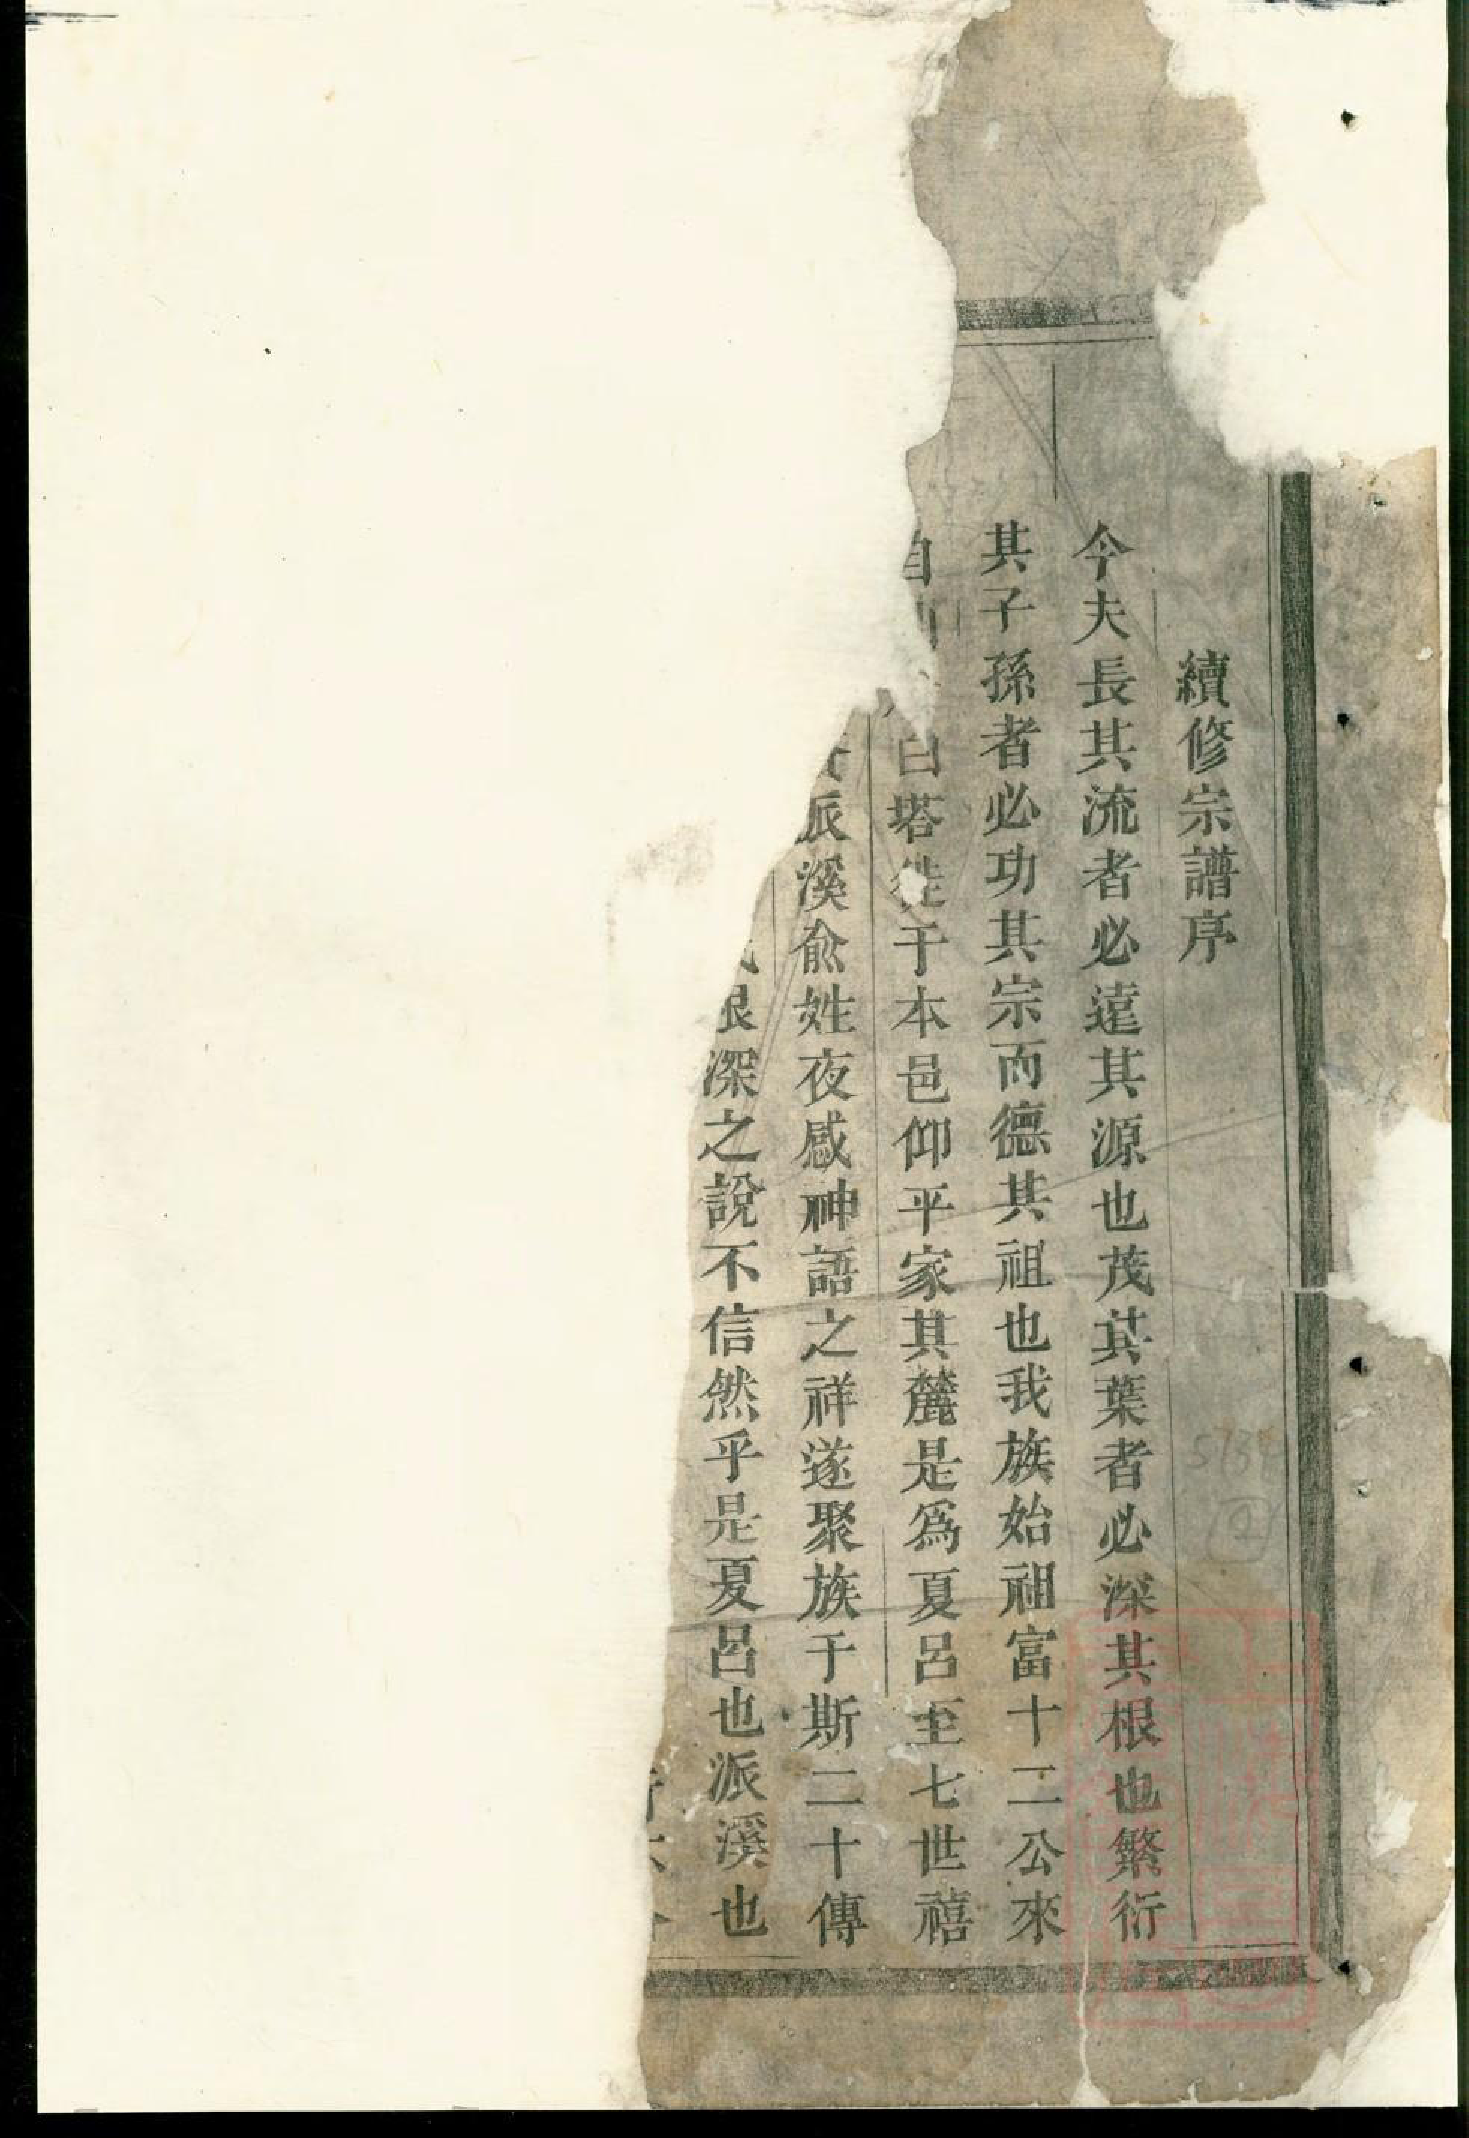 續修宗譜序
今夫長其流者必遠其源也茂其葉者必深其根也繁衍
其子孫者必功其宗而德其祖也我族始祖富十二公來
自白塔徙于本邑仰平家其麓是爲夏呂至七世禧
派溪俞姓夜感神語之祥遂聚族于斯二十傳
根深之說不信然乎是夏呂也派溪也